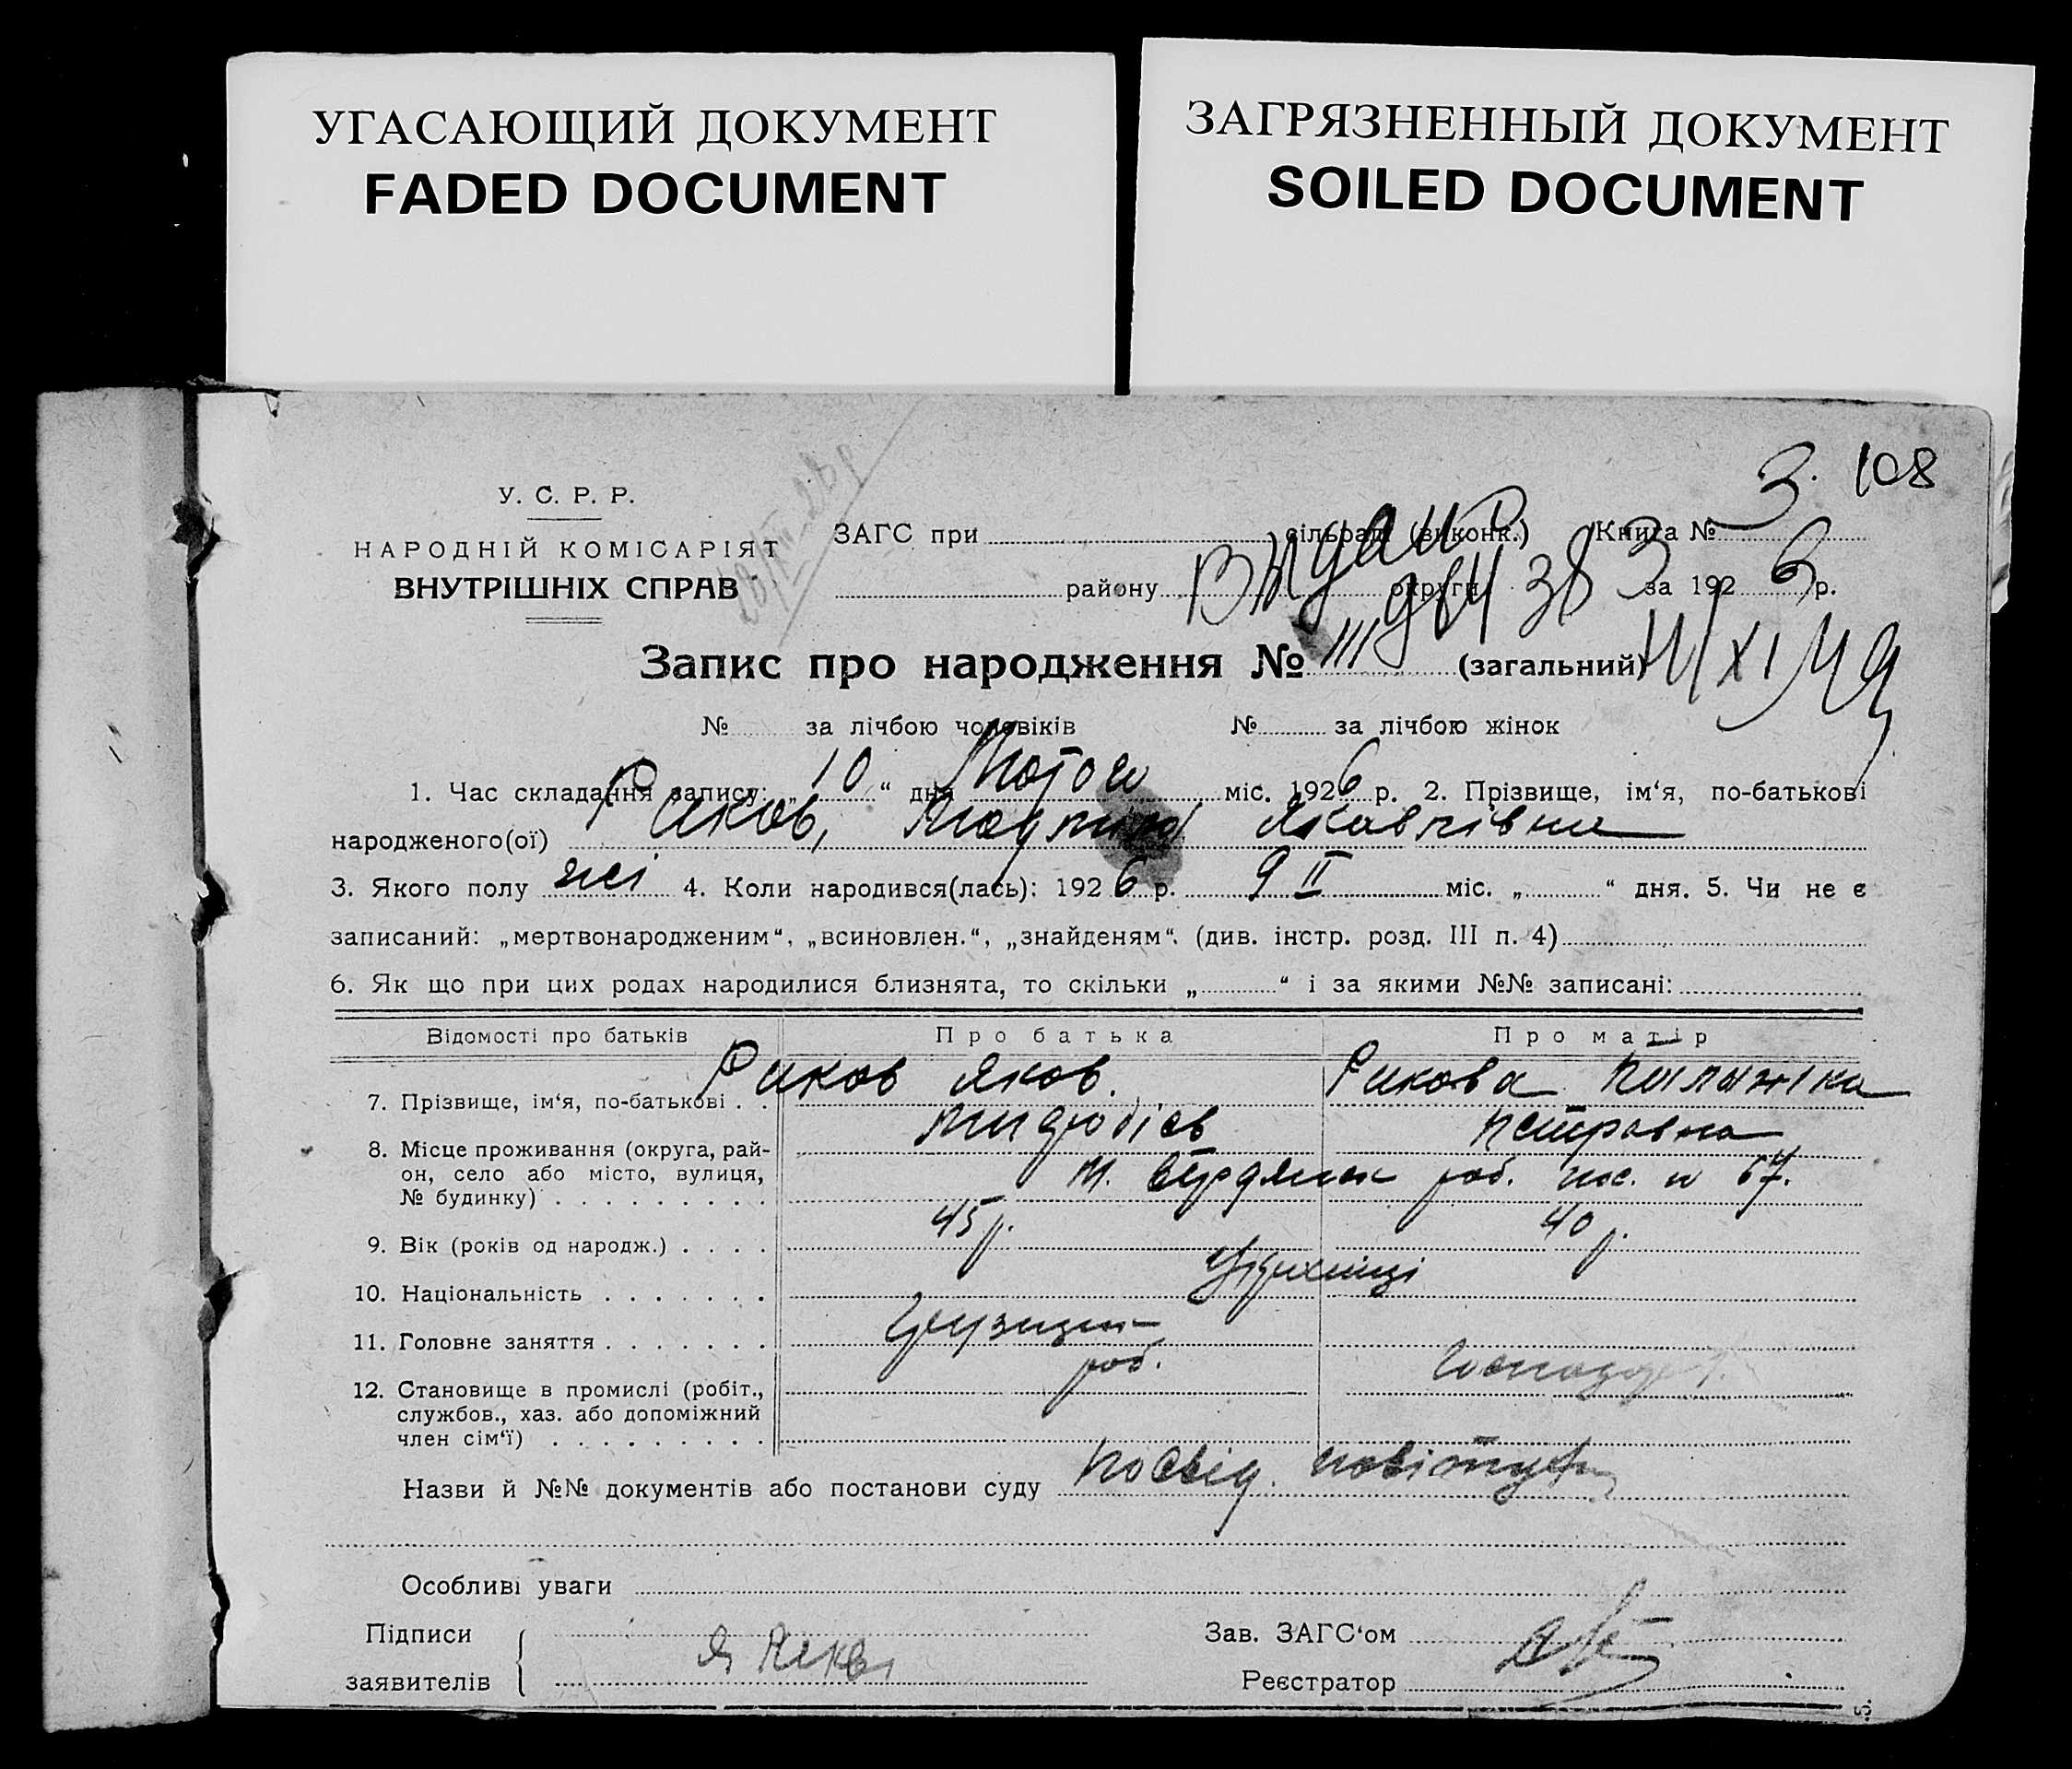 УГАСАЮЩИЙ ДОКУМЕНТ
FADED DOCUMENT
ЗАГРЯЗНЕННЫЙ ДОКУМЕНТ
SOILED DOCUMENT
3. 108
У. С. Р. Р.
НАРОДНІЙ КОМІСАРІЯТ
ВНУТРІШНІХ СПРАВ
ЗАГС при сільраді (виконк.) Книга №
району округи за 1926 р.
Запис про народження № 111 (загальний)
№ за лічбою чоловіків № за лічбою жінок
1. Час складання запису: „10“ дня Лютого міс. 1926 р. 2. Прізвище, ім‘я, по-батькові
народженого(ої) Риков, Людмила Яковлівна
3. Якого полу жі 4. Коли народився(лась): 1926 р. 9 II міс. „ “ дня. 5. Чи не є
записаний: „мертвонародженим“, „всиновлен.“, „знайденям“. (див. інстр. розд. III п. 4)
6. Як що при цих родах народилися близнята, то скільки „ “ і за якими №№ записані:
Відомості про батьків Про батька Про матір
7. Прізвище, ім‘я, по-батькові Риков Яков. Рикова
Петровна
8. Місце проживання (округа, рай-
он, село або місто, вулиця,
№ будинку) м. Бердянськ роб. пос. 67.
9. Вік (років од народж.) 45 р. 40 р.
10. Національність Українці
11. Головне заняття
роб.
12. Становище в промислі (робіт.,
службов., хаз. або допоміжний
член сім‘ї)
Назви й №№ документів або постанови суду Посвід.
Особливі уваги
Підписи
заявителів
Зав. ЗАГС‘ом
Реєстратор